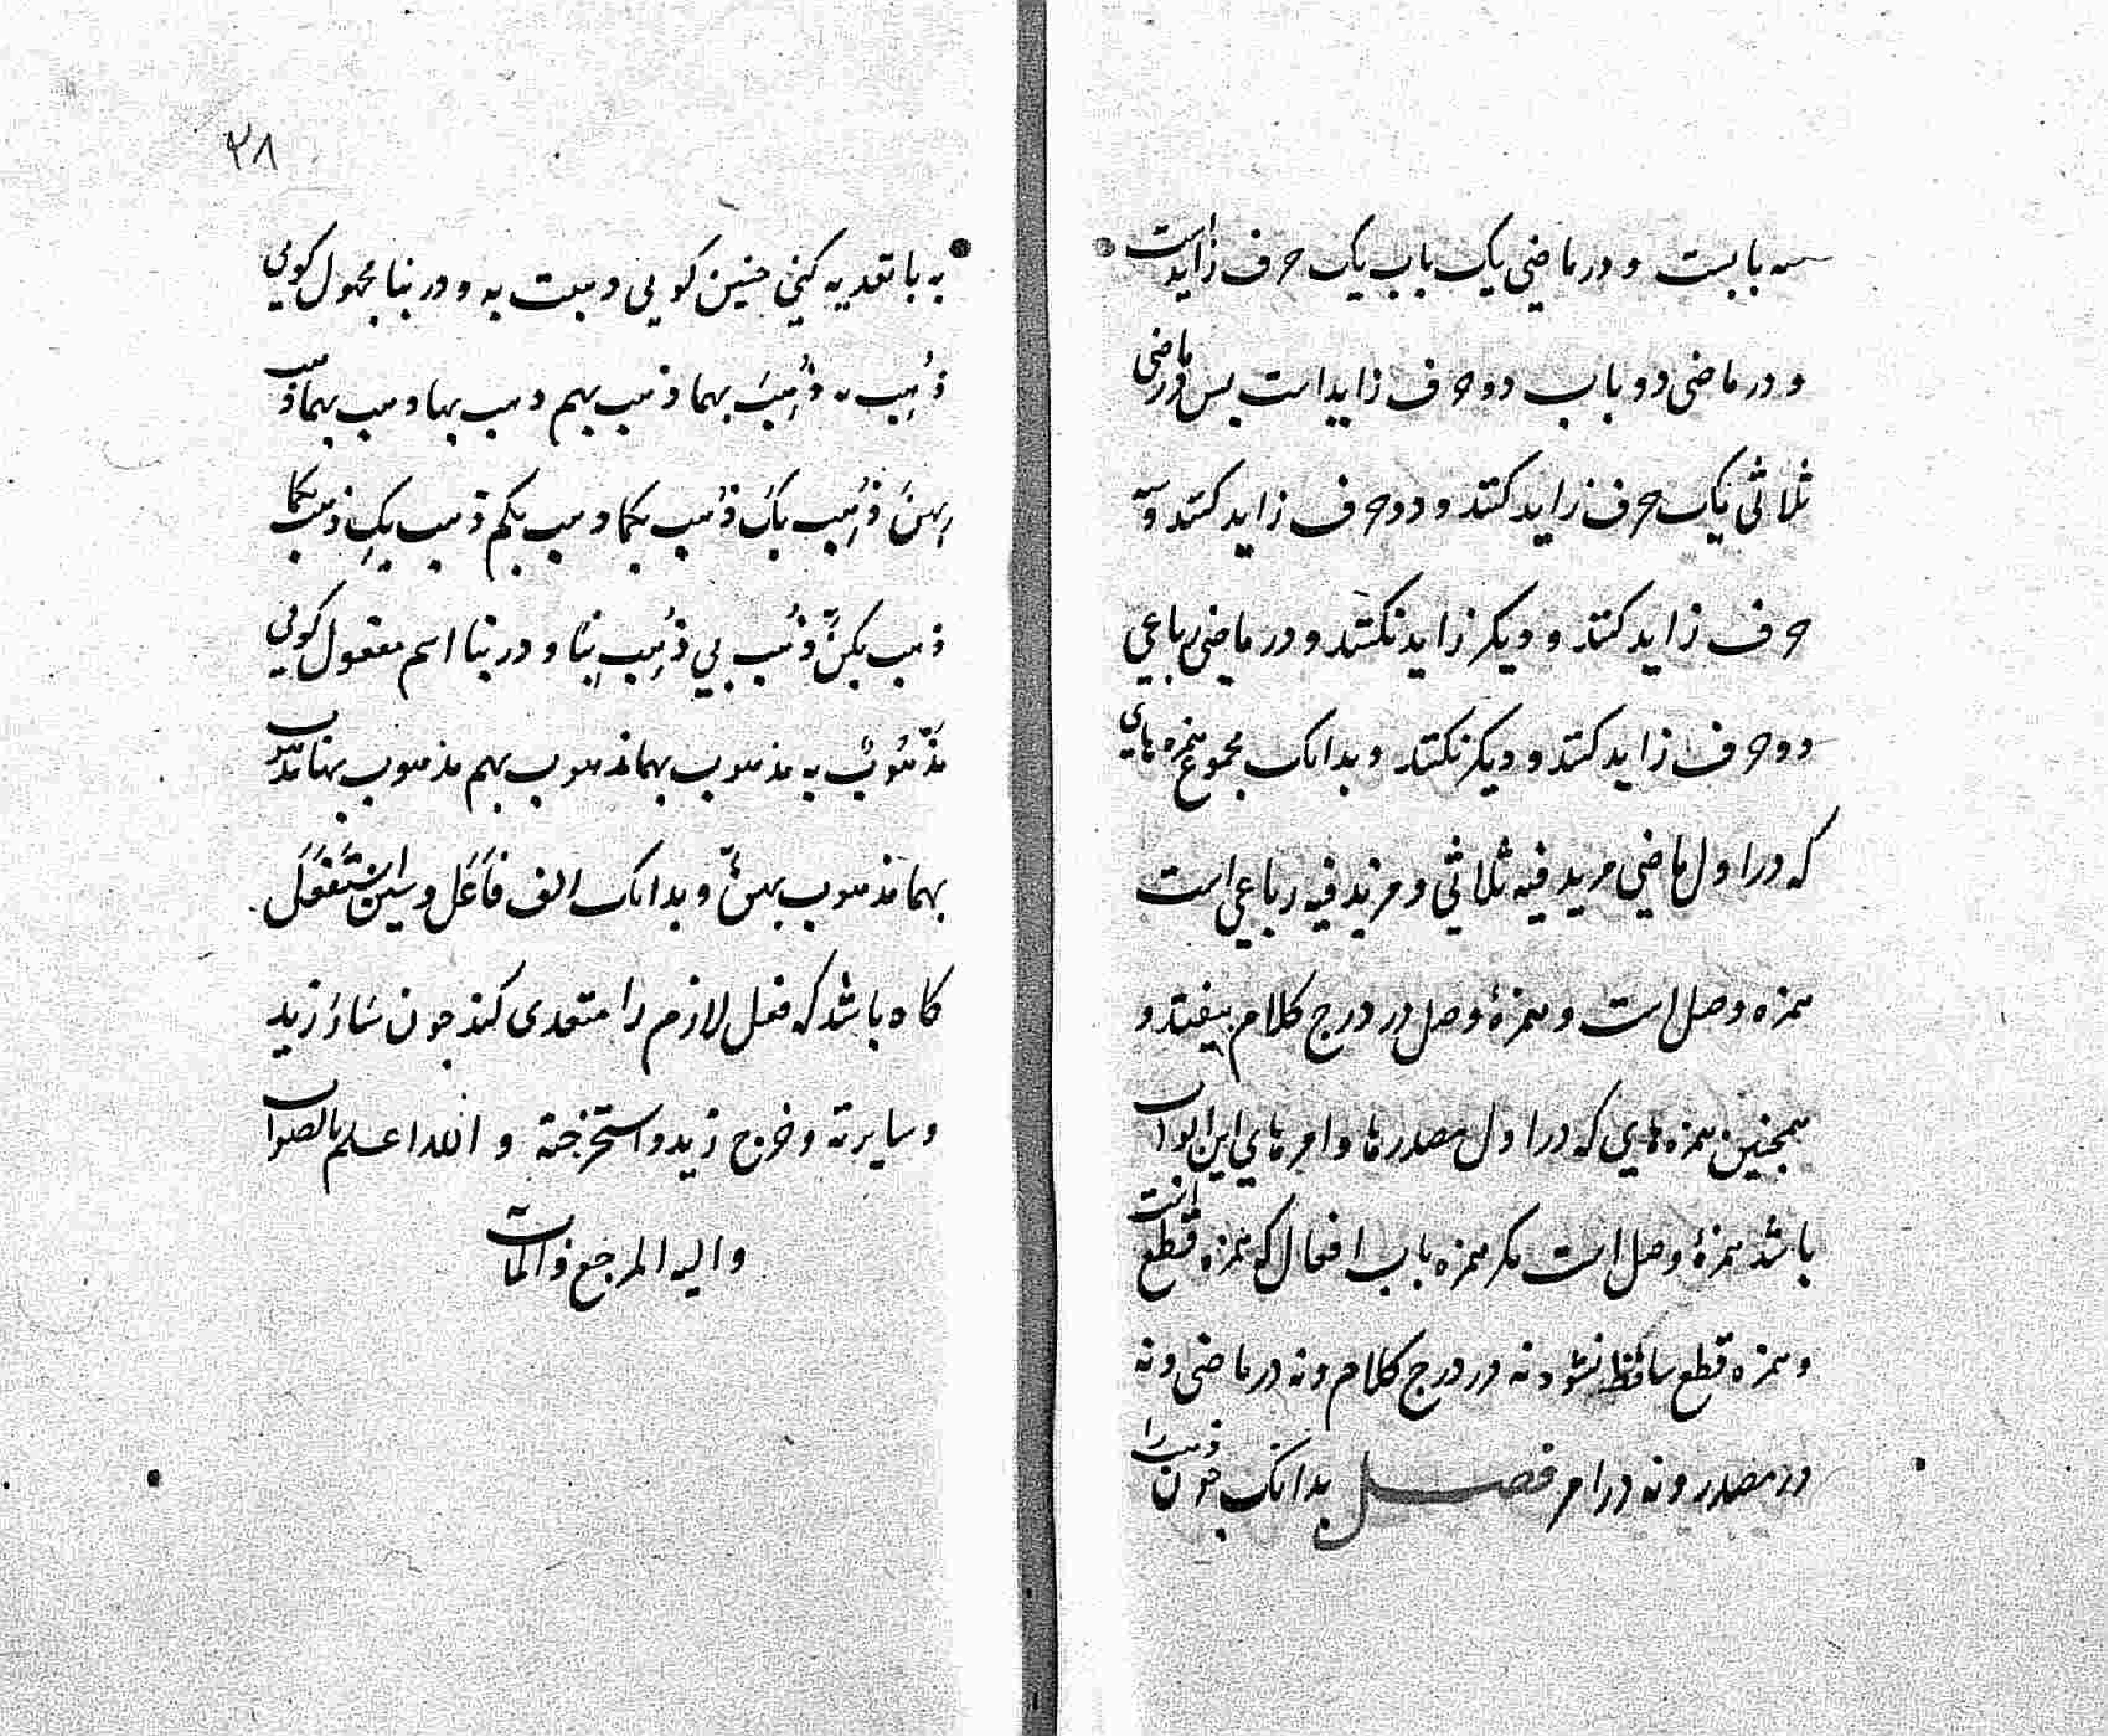 سه بابست و در ماضی یک باب یک حرف زایدست
و در ماضی دو باب دو حرف زایداست بس در ماضی
ثلاثی یک حرف زاید کنند و دو حرف زاید کنند و سه
حرف زاید کنند و دیکر زاید نکنند و در ماضی رباعی
دو حرف زاید کنند و دیکر نکنند و بدانک مجموع همزه های
که در اول ماضی مزید فیه ثلاثی و مزید فیه رباعی است
همزه وصل است و همزۀ وصل در درج کلام بیفتد و
همجنین همزه هایی که در اول مصدرها و امرهای این ابواب
باشد همزۀ وصل است مکر همزه باب افعال که همزه قطع است
و همزه قطع ساقط نشود نه در درج کلام و نه در ماضی و نه
در مصدر و نه در امر فصل بدانک جون ذهب را
۲۸
به با تعدیه کنی جنین کویی ذهبت به و در بنا مجهول کویی
ذُهِب به ذُهِبَ بهما ذهب بهم ذهب بها ذهب بهما ذهب
بهنّ ذُهِب بکَ ذُهب بکما ذهب بکم ذهب بکِ ذهب بکما
ذهب بکنّ ذُهب بی ذُهِب بِنَا و در بنا اسم مفعول کویی
مَذْهُوبٌ به مذهوب بهما مذهوب بهم مذهوب بها مذهوب
بهما مذهوب بهنّ و بدانک الف فَاعَل و سین استَفْعَل
کاه باشد که فعل لازم را متعدی کند جون سَارَ زید
و سایرته و خرج زید و استخرجته و الله اعلم بالصواب
و الیه المرجع و المآب